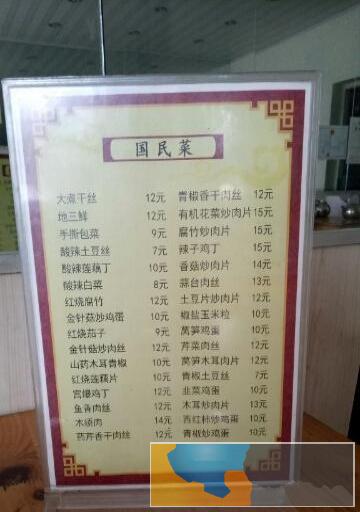 国民菜
大煮干丝 12元
地三鲜 12元
手撕包菜 9元
酸辣土豆丝 7元
酸辣莲藕丁 10元
酸辣白菜 8元
红烧腐竹 12元
金针菇炒鸡蛋 10元
红烧茄子 9元
金针菇炒肉丝 12元
山药木耳青椒 10元
红烧莲藕片 10元
宫爆鸡丁 12元
鱼香肉丝 12元
木须肉 14元
药芹香干肉丝 12元
青椒香干肉丝 12元
有机花菜炒肉片 15元
腐竹炒肉片 15元
辣子鸡丁 15元
香菇炒肉片 14元
蒜台肉丝 13元
土豆片炒肉片 12元
椒盐玉米粒 10元
莴笋鸡蛋 10元
芹菜肉丝 12元
莴笋木耳肉片 12元
青椒土豆丝 7元
韭菜鸡蛋 10元
木耳炒肉片 13元
西红柿炒鸡蛋 10元
青椒炒鸡蛋 10元